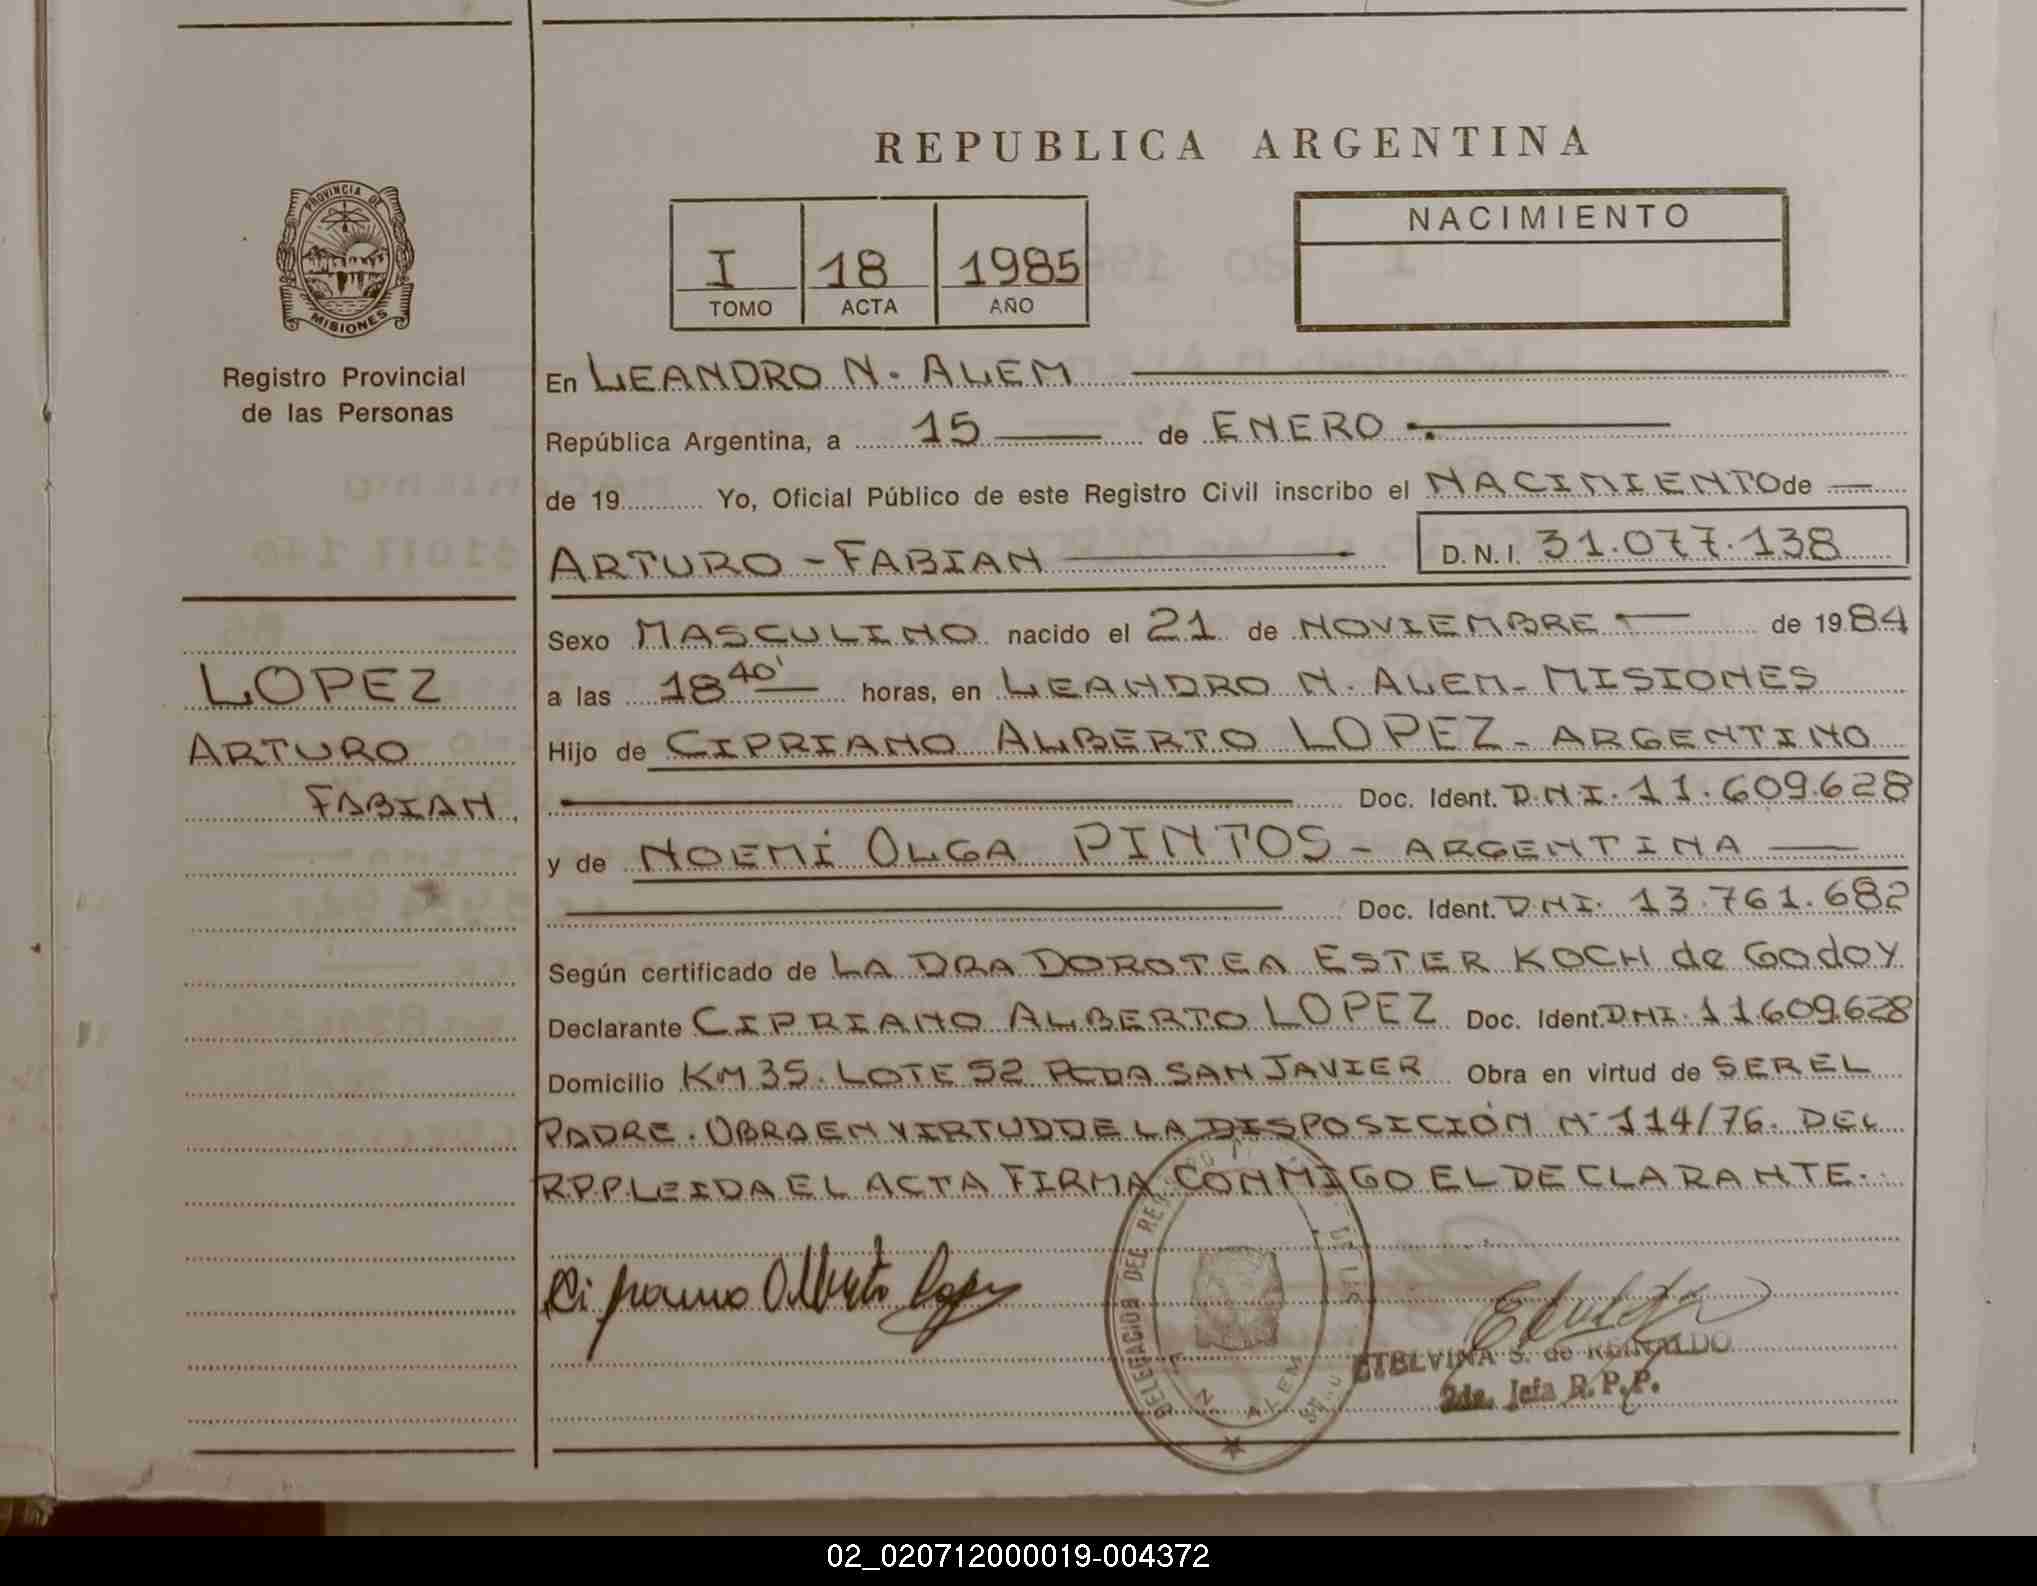 REPUBLICA ARGENTINA
PROVINCIA DE
MISIONES
Registro Provincial
de las Personas
I 18 1985
TOMO ACTA AÑO
NACIMIENTO
En LEANDRO N. ALEM
República Argentina, a 15 de ENERO
de 19 Yo, Oficial Público de este Registro Civil inscribo el NACIMIENTO de
ARTURO - FABIAN D.N.I. 31.077.138
LOPEZ
ARTURO
FABIAN
Sexo MASCULINO nacido el 21 de NOVIEMBRE de 1984
a las 18 40' horas, en LEANDRO N. ALEM - MISIONES
Hijo de CIPRIANO ALBERTO LOPEZ - ARGENTINO
Doc. Ident. D.N.I. 11.609.628
y de NOEMÍ OLGA PINTOS - ARGENTINA
Doc. Ident. D.N.I. 13.761.682
Según certificado de LA DRA DOROTEA ESTER KOCH de GODOY
Declarante CIPRIANO ALBERTO LOPEZ Doc. Ident. DNI. 11609628
Domicilio KM 35. LOTE 52 PCDA SAN JAVIER Obra en virtud de SER EL
PADRE. OBRA EN VIRTUD DE LA DISPOSICIÓN N° 114/76. DEL
R.P.P. LEIDA EL ACTA FIRMA CONMIGO EL DECLARANTE.
Cipriano Alberto Lopez
DELEGACION DEL DE LAS
N ALEM
ETELVINA S. de REINALDO
2da. Jefa R.P.P.
02_020712000019-004372